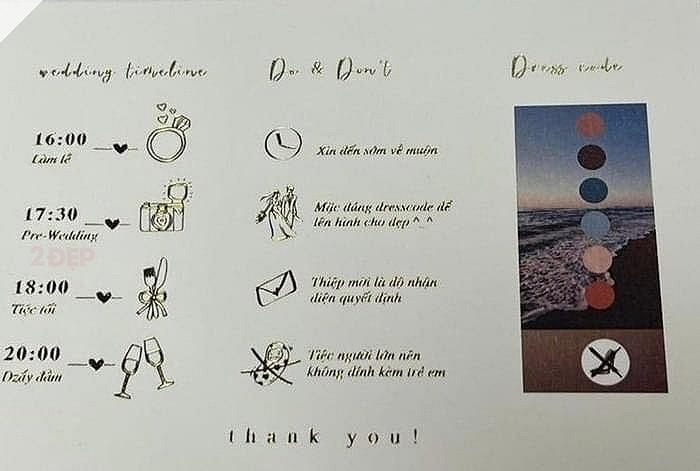 wedding timeline
16:00
Làm lễ
17:30
Pre-Wedding
2ĐẸP
18:00
Tiệc tối
20:00
Dzẩy đầm
Do & Don't
Xin đến sớm về muộn
Mặc đúng dresscode để
lên hình cho đẹp ^_^
Thiệp mời là độ nhận
diện quyết định
Tiệc người lớn nên
không đính kèm trẻ em
Dress code
thank you!